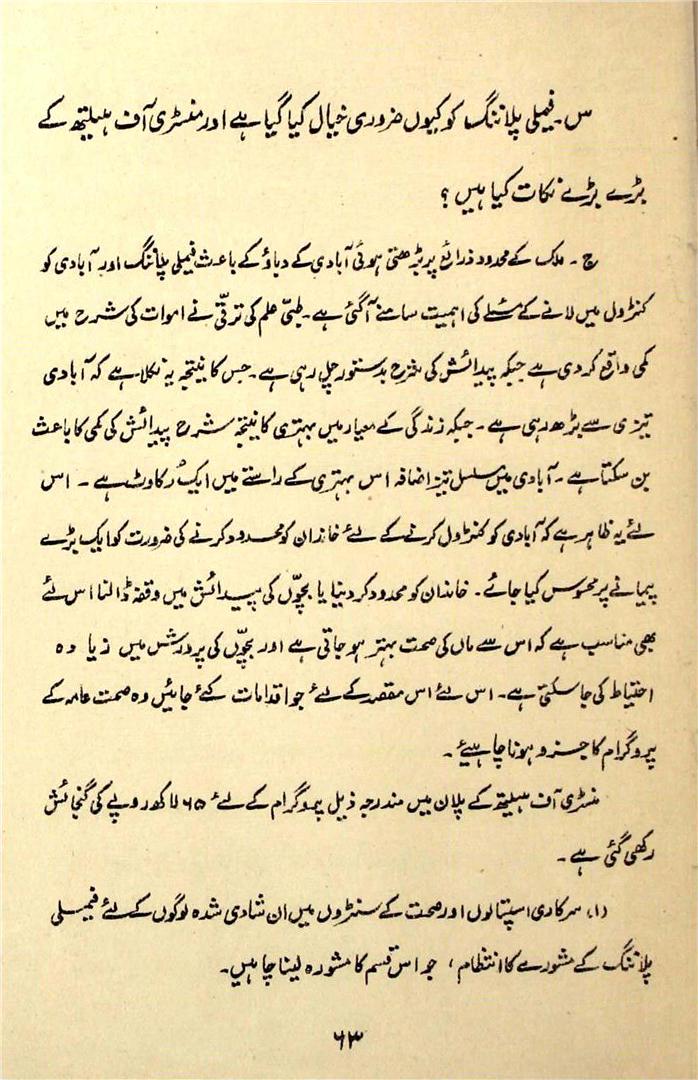 س۔ فیملی پلاننگ کو کیوں ضروری خیال کیا گیا ہے اور منسٹری آف ہیلتھ کے
بڑے بڑے نکات کیا ہیں؟
ج ۔ ملک کے محدود ذرائع پر بڑھتی ہوئی آبادی کے دباؤ کے باعث فیملی پلاننگ اور آبادی کو
کنٹرول میں لانے کے مسئلے کی اہمیت سامنے آگئی ہے۔ طبّی علم کی ترقّی نے اموات کی شرح میں
کمی واقع کر دی ہے جبکہ پیدائش کی شرح بدستور چل رہی ہے۔ جس کا نتیجہ یہ نکلا ہے کہ آبادی
تیزی سے بڑھ رہی ہے۔ جبکہ زندگی کے معیار میں بہتری کا نتیجہ شرح پیدائش کی کمی کا باعث
بن سکتا ہے۔ آبادی میں مسلسل تیز اضافہ اس بہتری کے راستے میں ایک رکاوٹ ہے ۔ اس
لئے یہ ظاہر ہے کہ آبادی کو کنٹرول کرنے کے لئے خاندان کو محدود کرنے کی ضرورت کو ایک بڑے
پیمانے پر محسوس کیا جائے۔ خاندان کو محدود کر دینا یا بچّوں کی پیدائش میں وقفہ ڈالنا اس لئے
بھی مناسب ہے کہ اس سے ماں کی صحت بہتر ہو جاتی ہے اور بچّوں کی پرورش میں زیادہ
احتیاط کی جا سکتی ہے۔ اس لئے اس مقصد کے لئے جو اقدامات کئے جائیں وہ صحت عامہ کے
پروگرام کا جزو ہونا چاہیئے ۔
منسٹری آف ہیلتھ کے پلان میں مندرجہ ذیل پروگرام کے لئے ۶۵ لاکھ روپے کی گنجائش
رکھی گئی ہے ۔
(۱) سرکاری اسپتالوں اور صحت کے سنٹروں میں ان شادی شدہ لوگوں کے لئے فیملی
پلاننگ کے مشورے کا انتظام، جو اس قسم کا مشورہ لینا چاہیں۔
۶۳